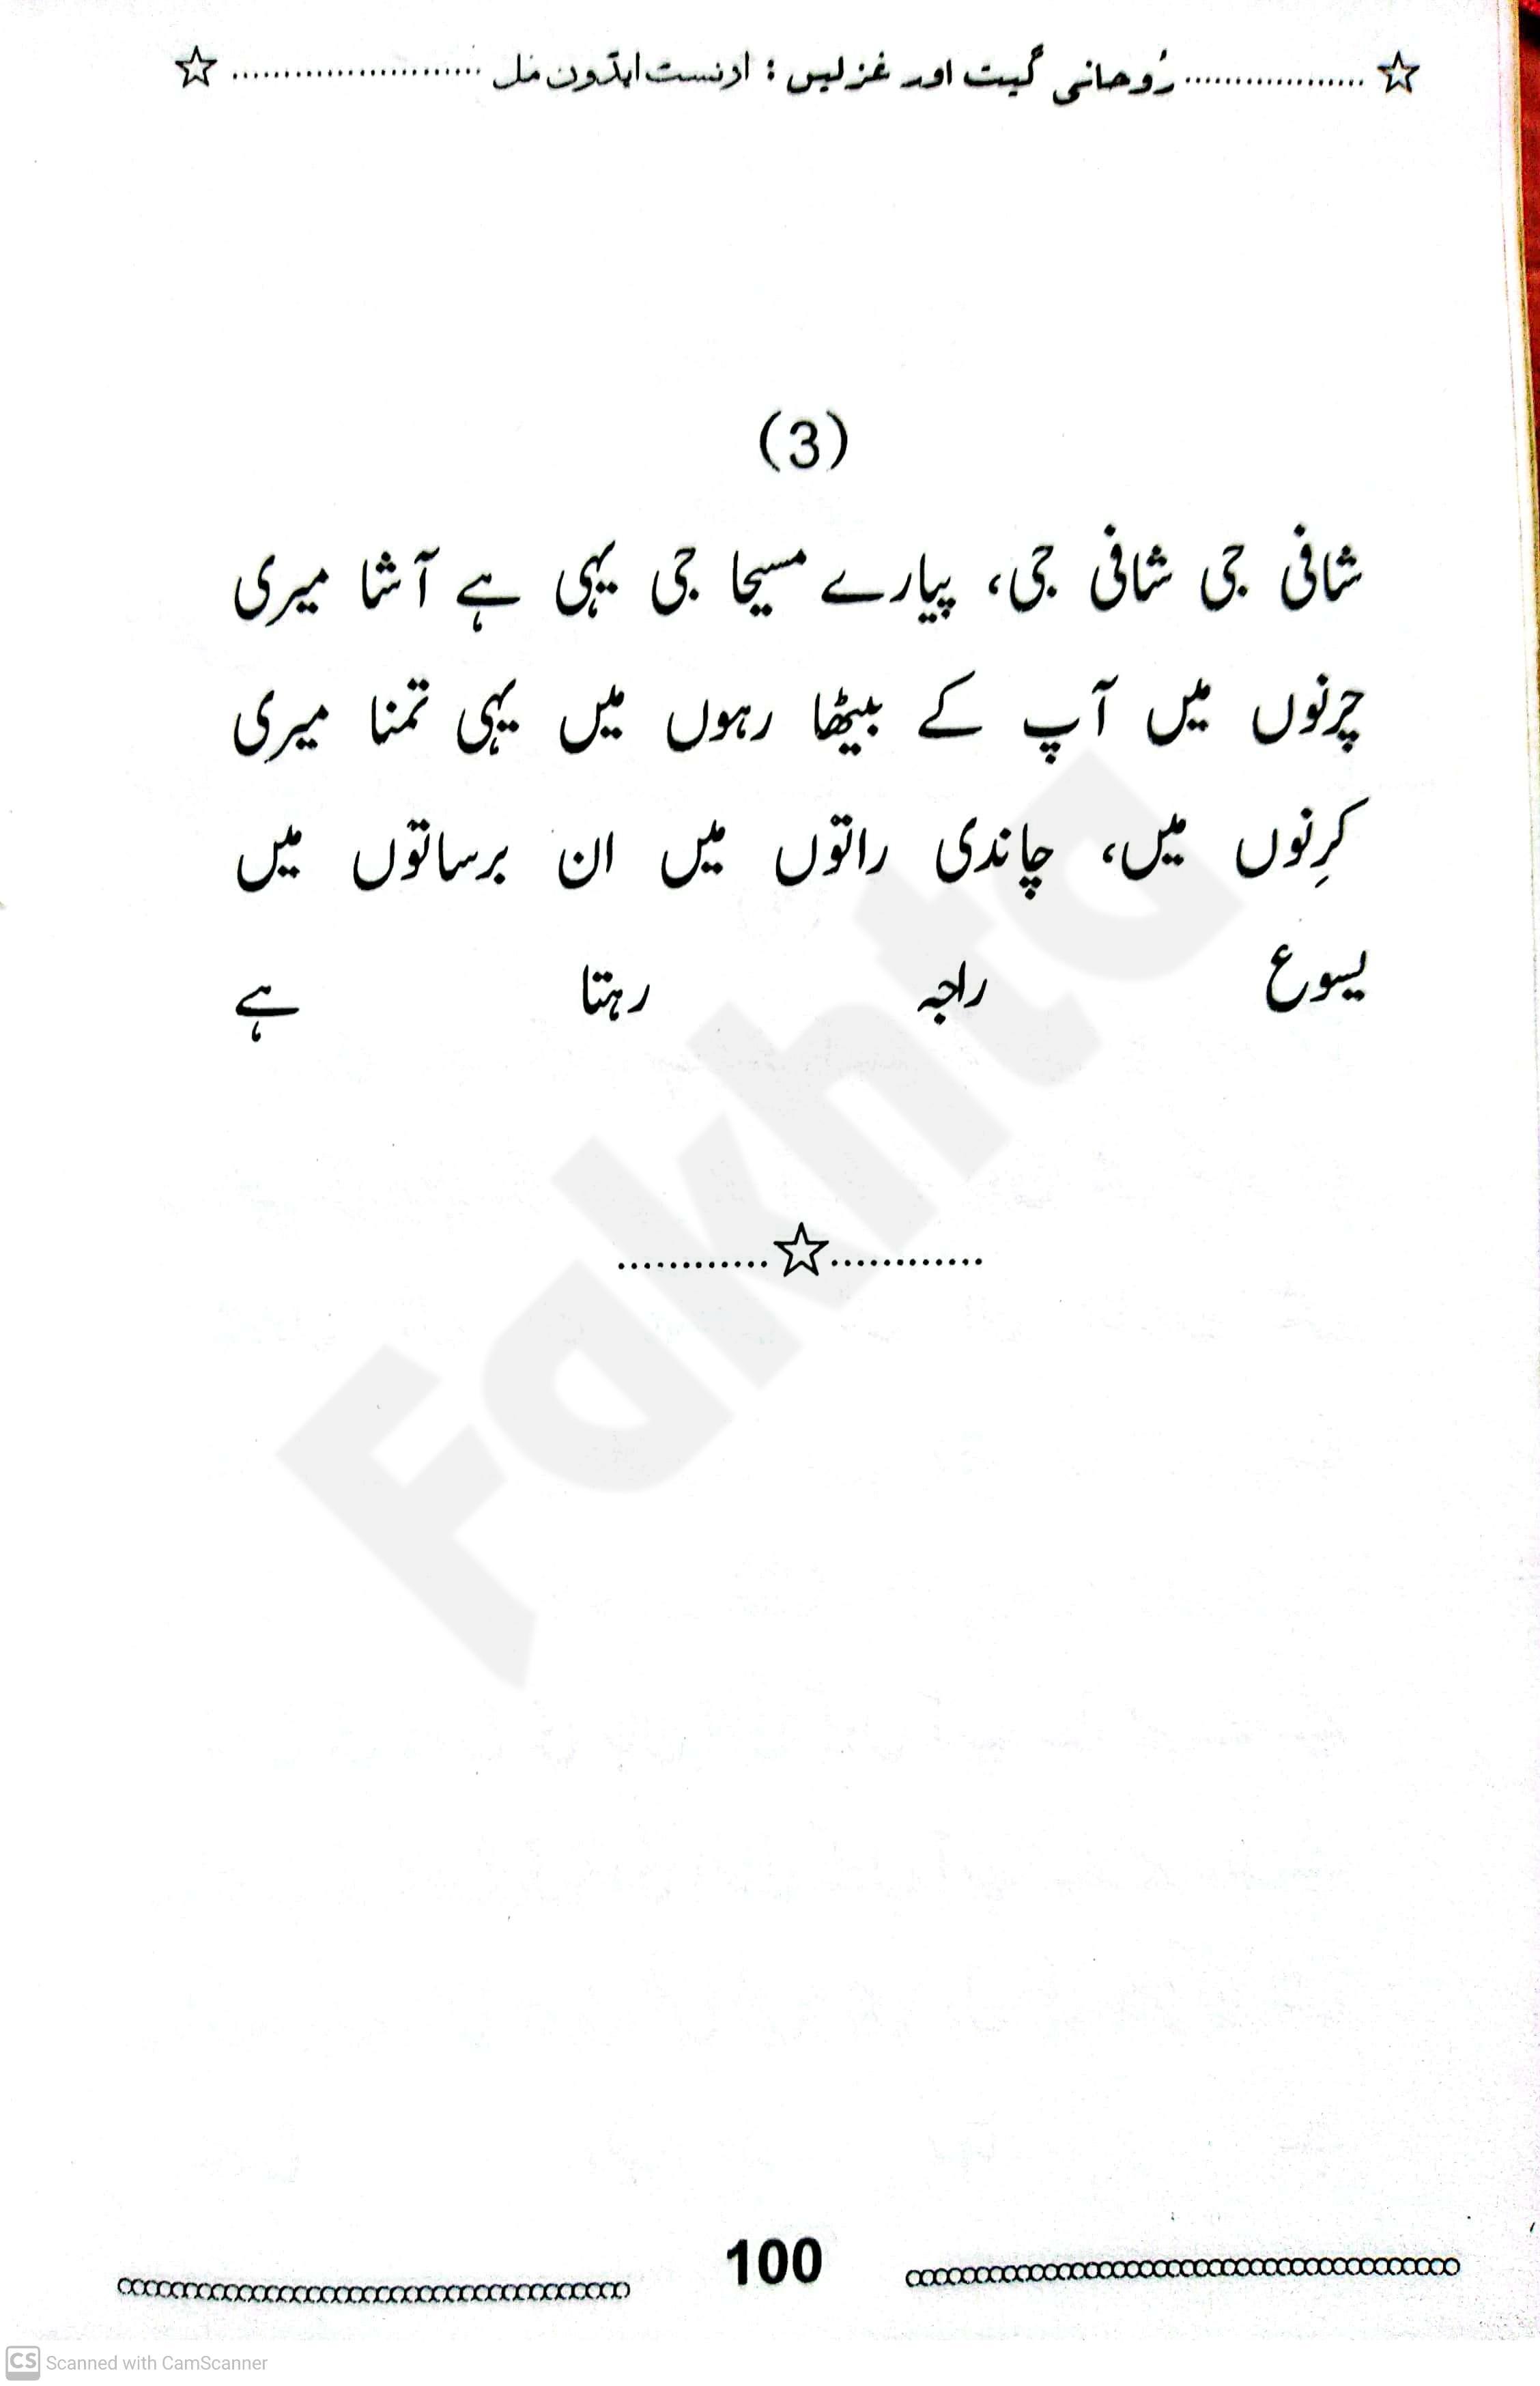 ☆..................رُوحانی گیت اور غزلیں : ارنسٹ ایڈون مَل.........................☆
(3)
شافی جی شافی جی، پیارے مسیحا جی یہی ہے آشا میری
چرنوں میں آپ کے بیٹھا رہوں میں یہی تمنا میری
کرِنوں میں، چاندی راتوں میں ان برساتوں میں
یسوع راجہ رہتا ہے
............☆............
Fakhta
100
CS Scanned with CamScanner